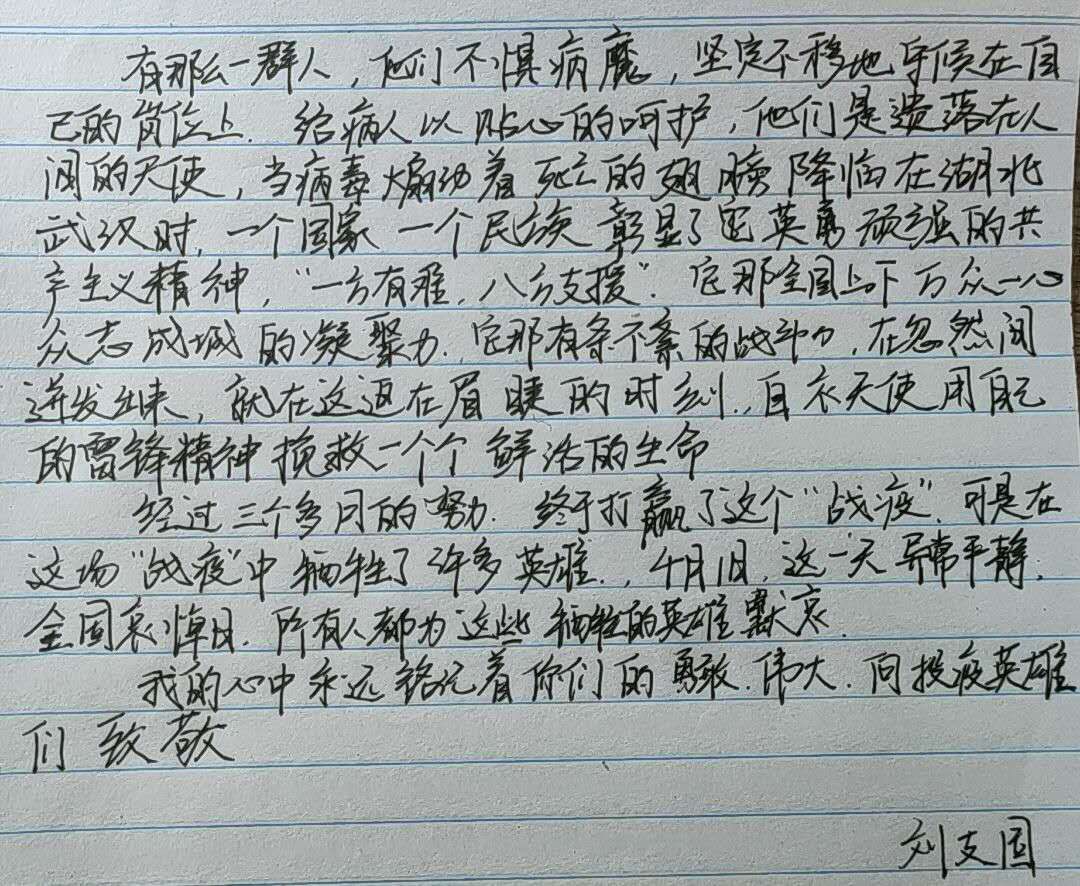 有那么一群人，他们不惧病魔，坚定不移地守候在自
己的岗位上.给病人以贴心的呵护，他们是遗落在人
间的天使，当病毒煽动着死亡的翅膀降临在湖北
武汉时，一个国家一个民族彰显了它英勇顽强的共
产主义精神，“一方有难，八方支援”.它那全国上下万众一心
众志成城的凝聚力.它那有条不紊的战斗力，在忽然间
迸发出来，就在这迫在眉睫的时刻.，白衣天使用自己
的雷锋精神挽救一个个鲜活的生命
经过三个多月的努力.终于打赢了这个“战疫”.可是在
这场“战疫”中牺牲了许多英雄.，4月1日，这一天异常平静.
全国哀悼日.所有人都为这些牺牲的英雄默哀.
我的心中永远铭记着你们的勇敢.伟大.向投疫英雄
们致敬
刘支国